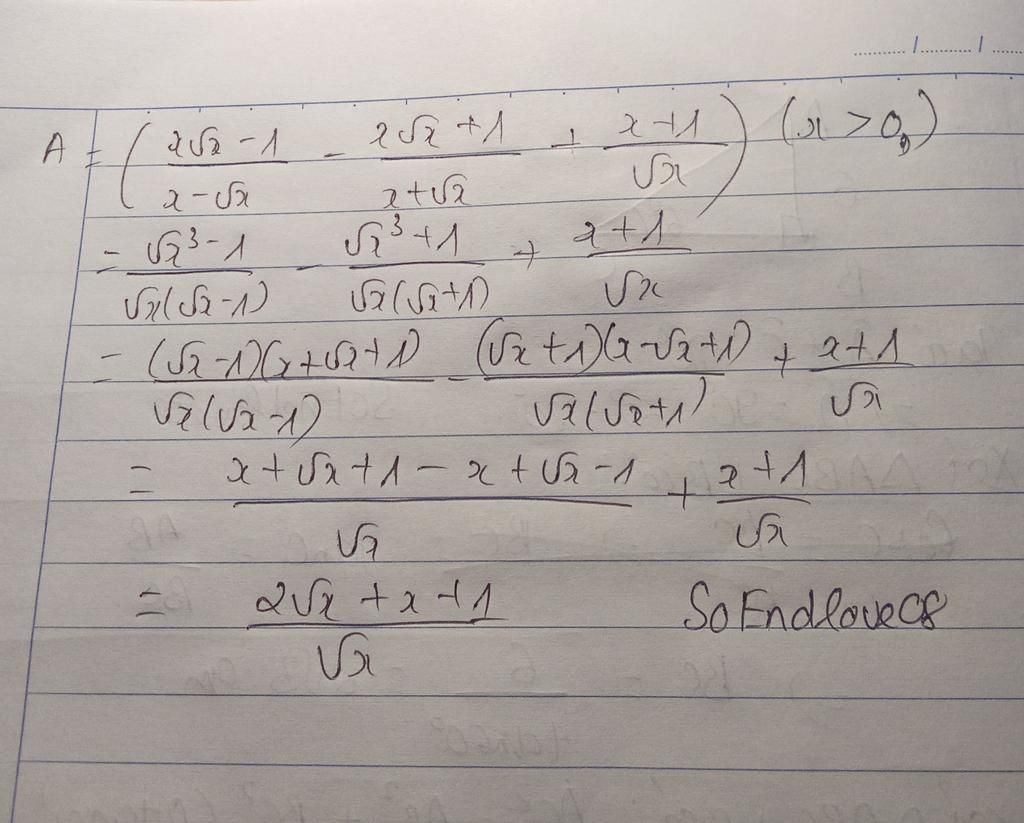 A = ( (x√x - 1)/(x - √x) - (x√x + 1)/(x + √x) + (x + 1)/√x ) (x > 0,)
= (√x³ - 1)/(√x(√x - 1)) - (√x³ + 1)/(√x(√x + 1)) + (x + 1)/√x
= (√x - 1)(x + √x + 1)/(√x(√x - 1)) - (√x + 1)(x - √x + 1)/(√x(√x + 1)) + (x + 1)/√x
= (x + √x + 1 - x + √x - 1)/√x + (x + 1)/√x
= (2√x + x + 1)/√x SoEndlove08